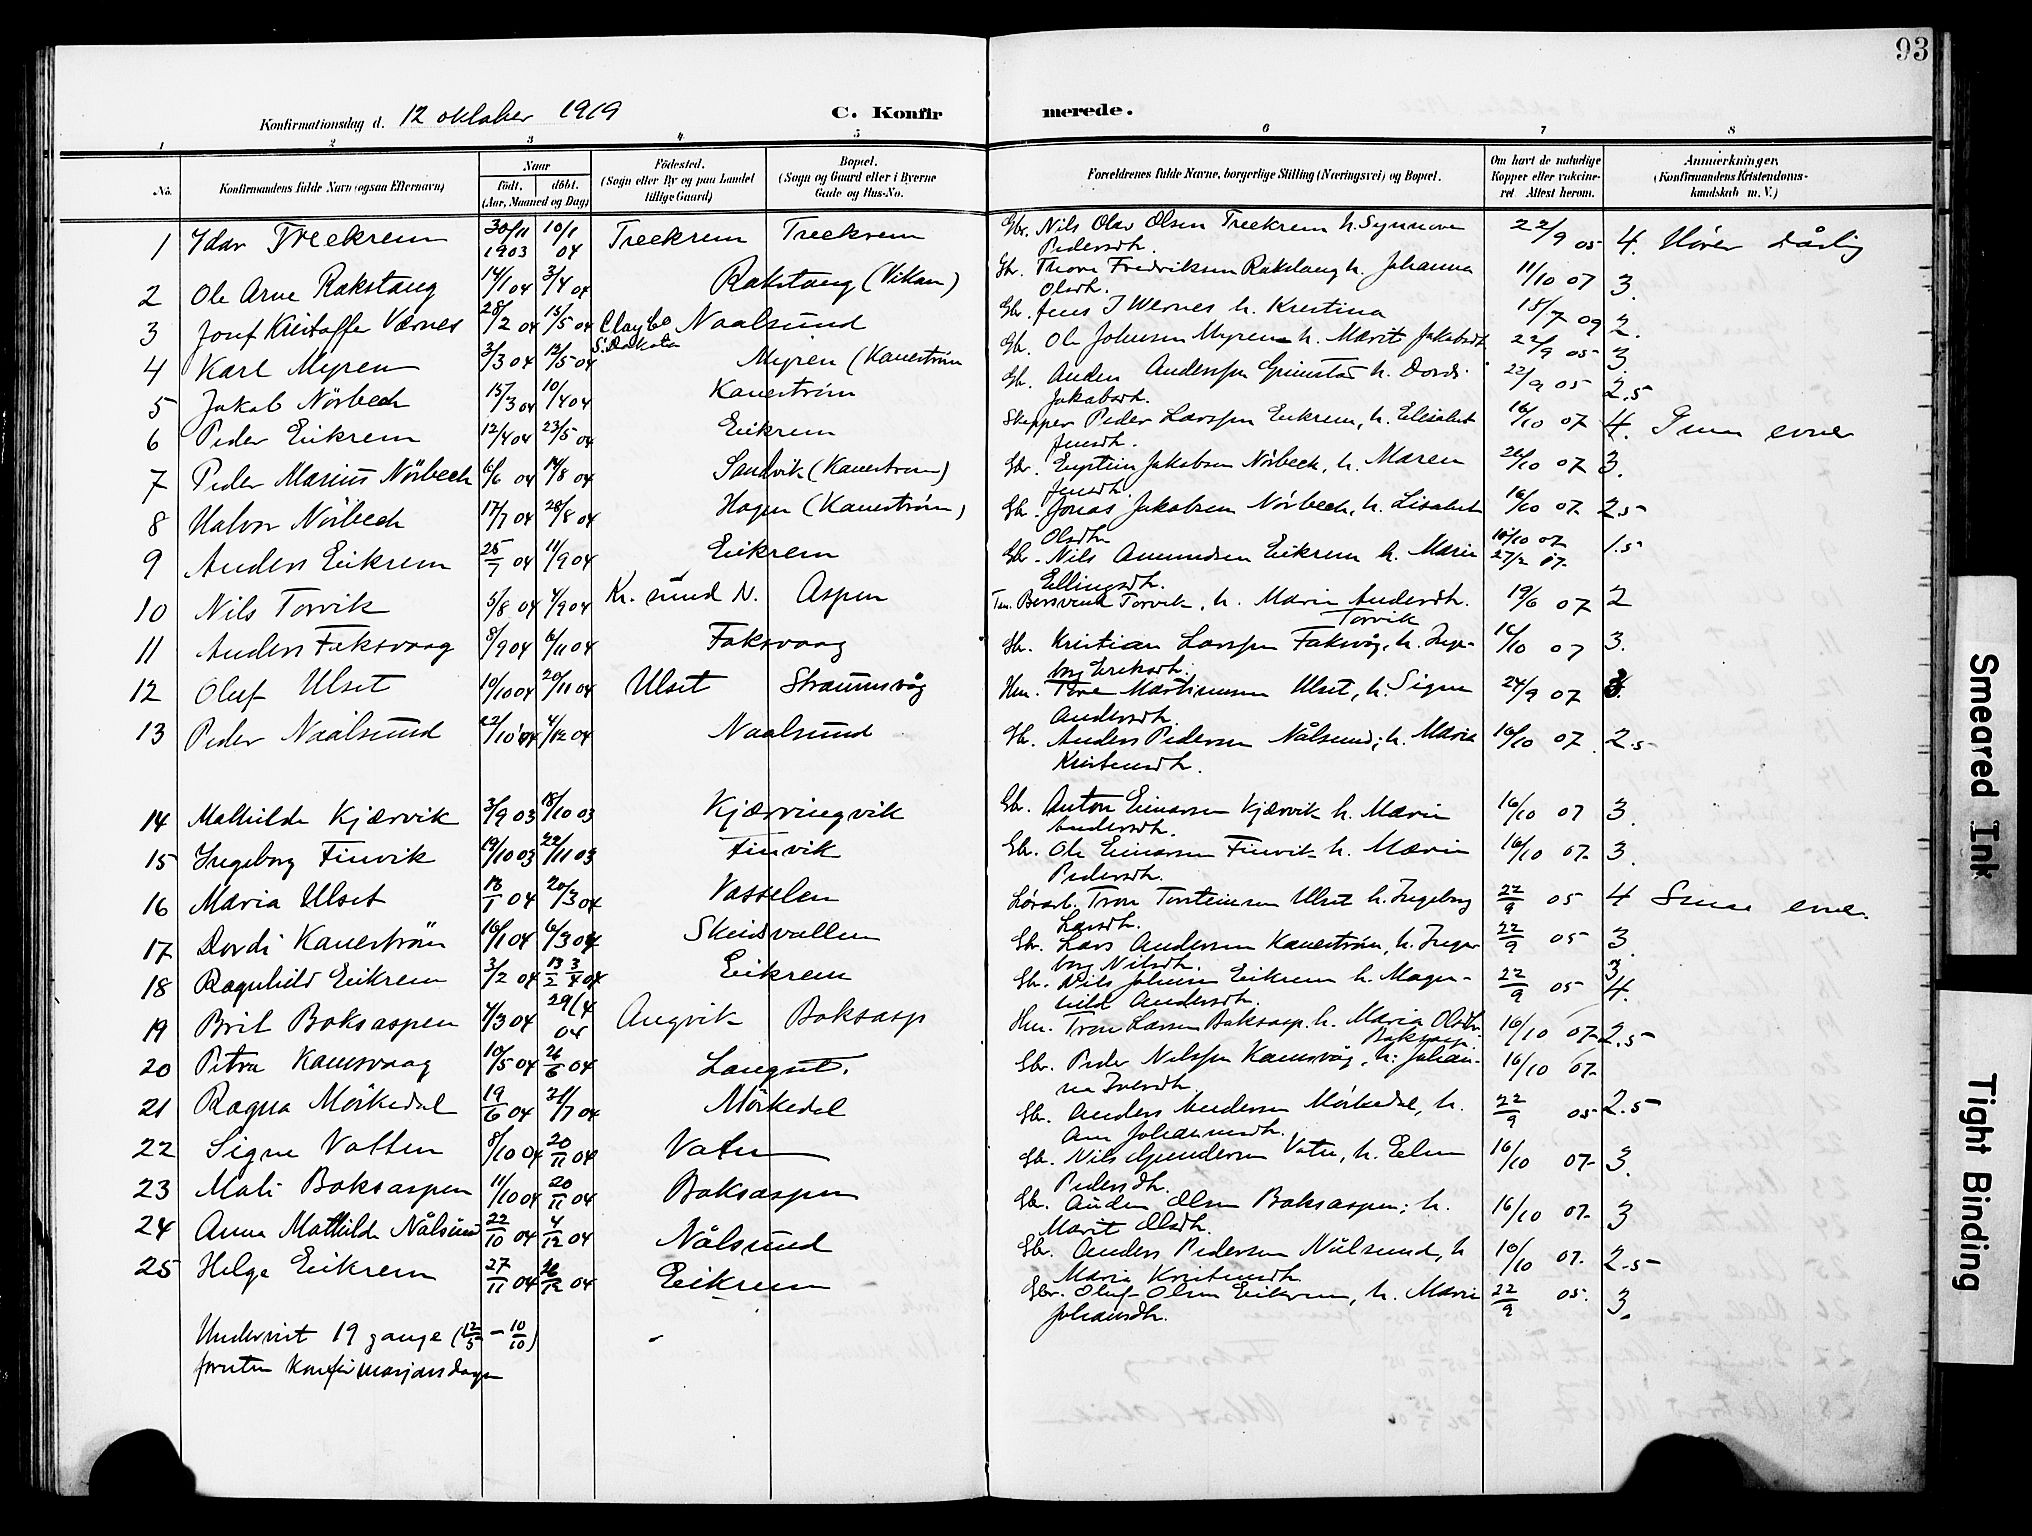 93
Konfirmationsdag d. 12 oktober 1919 C. Konfirmerede.
1 2 3 4 5 6 7 8
No. Konfirmandens fulde Navn (ogsaa Efternavn) Naar født. døbt. (Aar, Maaned og Dag) Fødested. (Sogn eller By og paa Landet tillige Gaard) Bopæl. (Sogn og Gaard eller i Byerne Gade og Hus-No. Forældrenes fulde Navne, borgerlige Stilling (Næringsvei) og Bopæl. Om havt de naturlige Kopper eller vakcineret Attest herom. Anmerkninger. (Konfirmandens Kristendomskundskab m. V.)
1 Idar Treekrem 30/11 1903 10/1 04 Treekrem Treekrem Gbr. Nils Olav Olsen Treekrem h. Synnøve Pedersdh. 22/9 05 4. Hører dårlig
2 Ole Arne Rakstang 14/1 04 3/4 04 Rakstang (Vikan) Gbr. Thore Fredriksen Rakstang h. Johanna Olsdh. 11/10 07 3.
3 Josef Kristoffer Værnes 28/2 04 15/5 04 Clay Co S. Dakota Naalsund Gbr. Jens J Wernes h. Kristina 15/7 09 2.
4 Karl Myren 3/3 04 12/5 04 Myren (Kanestrøm Gbr. Ole Johnsen Myren h. Marit Jakobsdh 22/9 05 3.
5 Jakob Nørbech 15/3 04 10/4 04 Kanestrøm Gbr. Anders Anderssen Grimstad h. Dordi Jakobsdh. 22/9 05 2.5
6 Peder Eikrem 12/4 04 23/5 04 Eikrem Skipper Peder Larssen Eikrem, h. Elisabet Jensdh. 16/10 07 4. Smaa evner
7 Peder Marius Nørbech 6/6 04 14/8 04 Sandvik (Kanestrøm) Gbr. Eystein Jakobsen Nørbech, h. Maren Jensdh. 26/10 07 3.
8 Halvor Nørbech 17/7 04 28/8 04 Hagen (Kanestrøm) Gbr. Jonas Jakobsen Nörbech, h. Lisabet Olsdh 16/10 07 2.5
9 Anders Eikrem 25/7 04 11/9 04 Eikrem Gbr. Nils Amundsen Eikrem h. Marie Ellingsdh. 16/10 07 27/2 07 1.5
10 Nils Torvik 5/8 04 4/9 04 Kr. sund N. Aspen Bersvend Torvik, h. Marie Andersdh. Torvik 19/6 07 2
11 Anders Faksvaag 8/9 04 6/11 04 Faksvaag Gbr. Kristian Larssen Faksvåg, h. Ingeborg Eriksdh. 16/10 07 3.
12 Oluf Ulset 10/10 04 20/11 04 Ulset Straumsvåg Hm. Tore Martinusen Ulset, h. Signe Andersdh. 24/9 07 3.
13 Peder Naalsund 22/10 04 4/12 04 Naalsund Gbr. Anders Pedersen Nålsund, h. Maria Kristensdh. 16/10 07 2.5
14 Mathilde Kjærvik 3/9 03 18/10 03 Kjærvingvik Gbr. Anton Einarsen Kjærvik h. Marie Andersdh. 16/10 07 3.
15 Ingeborg Finvik 19/10 03 22/11 03 Finvik Gbr. Ole Einarsen Finvik h. Marie Pedersdh. 16/10 07 3.
16 Maria Ulset 13/1 04 20/3 04 Vasselen Løsarb. Tron Torsteinsen Ulset h. Ingeborg Larsdh. 22/9 05 4 Smaa evner
17 Dordi Kanestrøm 16/1 04 6/3 04 Skeidsvallen Gbr. Lars Andersen Kanestrøm, h. Ingeborg Nilsdh. 22/9 05 3.
18 Ragnhild Eikrem 3/2 04 13/2 3/4 04 Eikrem Gbr. Nils Johnsen Eikrem h. Magnhild Andersdh. 22/9 05 3. 4.
19 Brit Boksaspen 4/3 04 29/4 04 Angvik Boksasp Hm. Tron Larsen Boksasp. h. Maria Olsdh. Boksasp. 16/10 07 2.5
20 Petra Kamsvaag 10/5 04 26/6 04 Langset. Gbr. Peder Nilssen Kamsvåg, h. Johanna Iversdh. 16/10 07
21 Ragna Mörkedal 19/6 04 24/7 04 Mörkedal Gbr. Anders Andersen Mörkedal, h. Ane Johannesdh. 22/9 05 2.5
22 Signe Vatten 8/10 04 20/11 04 Vatn Gbr. Nils Gundersen Vatn, h. Elen Pedersdh. 16/10 07 3.
23 Mali Boksaspen 11/10 04 20/11 04 Boksaspen Gbr. Anders Olsen Boksaspen, h. Marit Olsdh. 16/10 07 3
24 Anna Mathilde Nålsund 22/10 04 4/12 04 Nålsund Gbr. Anders Pedersen Nålsund, h Maria Kristensdh. 10/10 07. 2.5
25 Helge Eikrem 27/11 04 26/12 04 Eikrem Gbr. Oluf Olsen Eikrem, h. Marie Johansdh. 22/9 05. 3.
Undervist 19 gange (12/5 - 10/10)
foruten konfirmasjonsdagen
Smeared Ink
Tight Binding